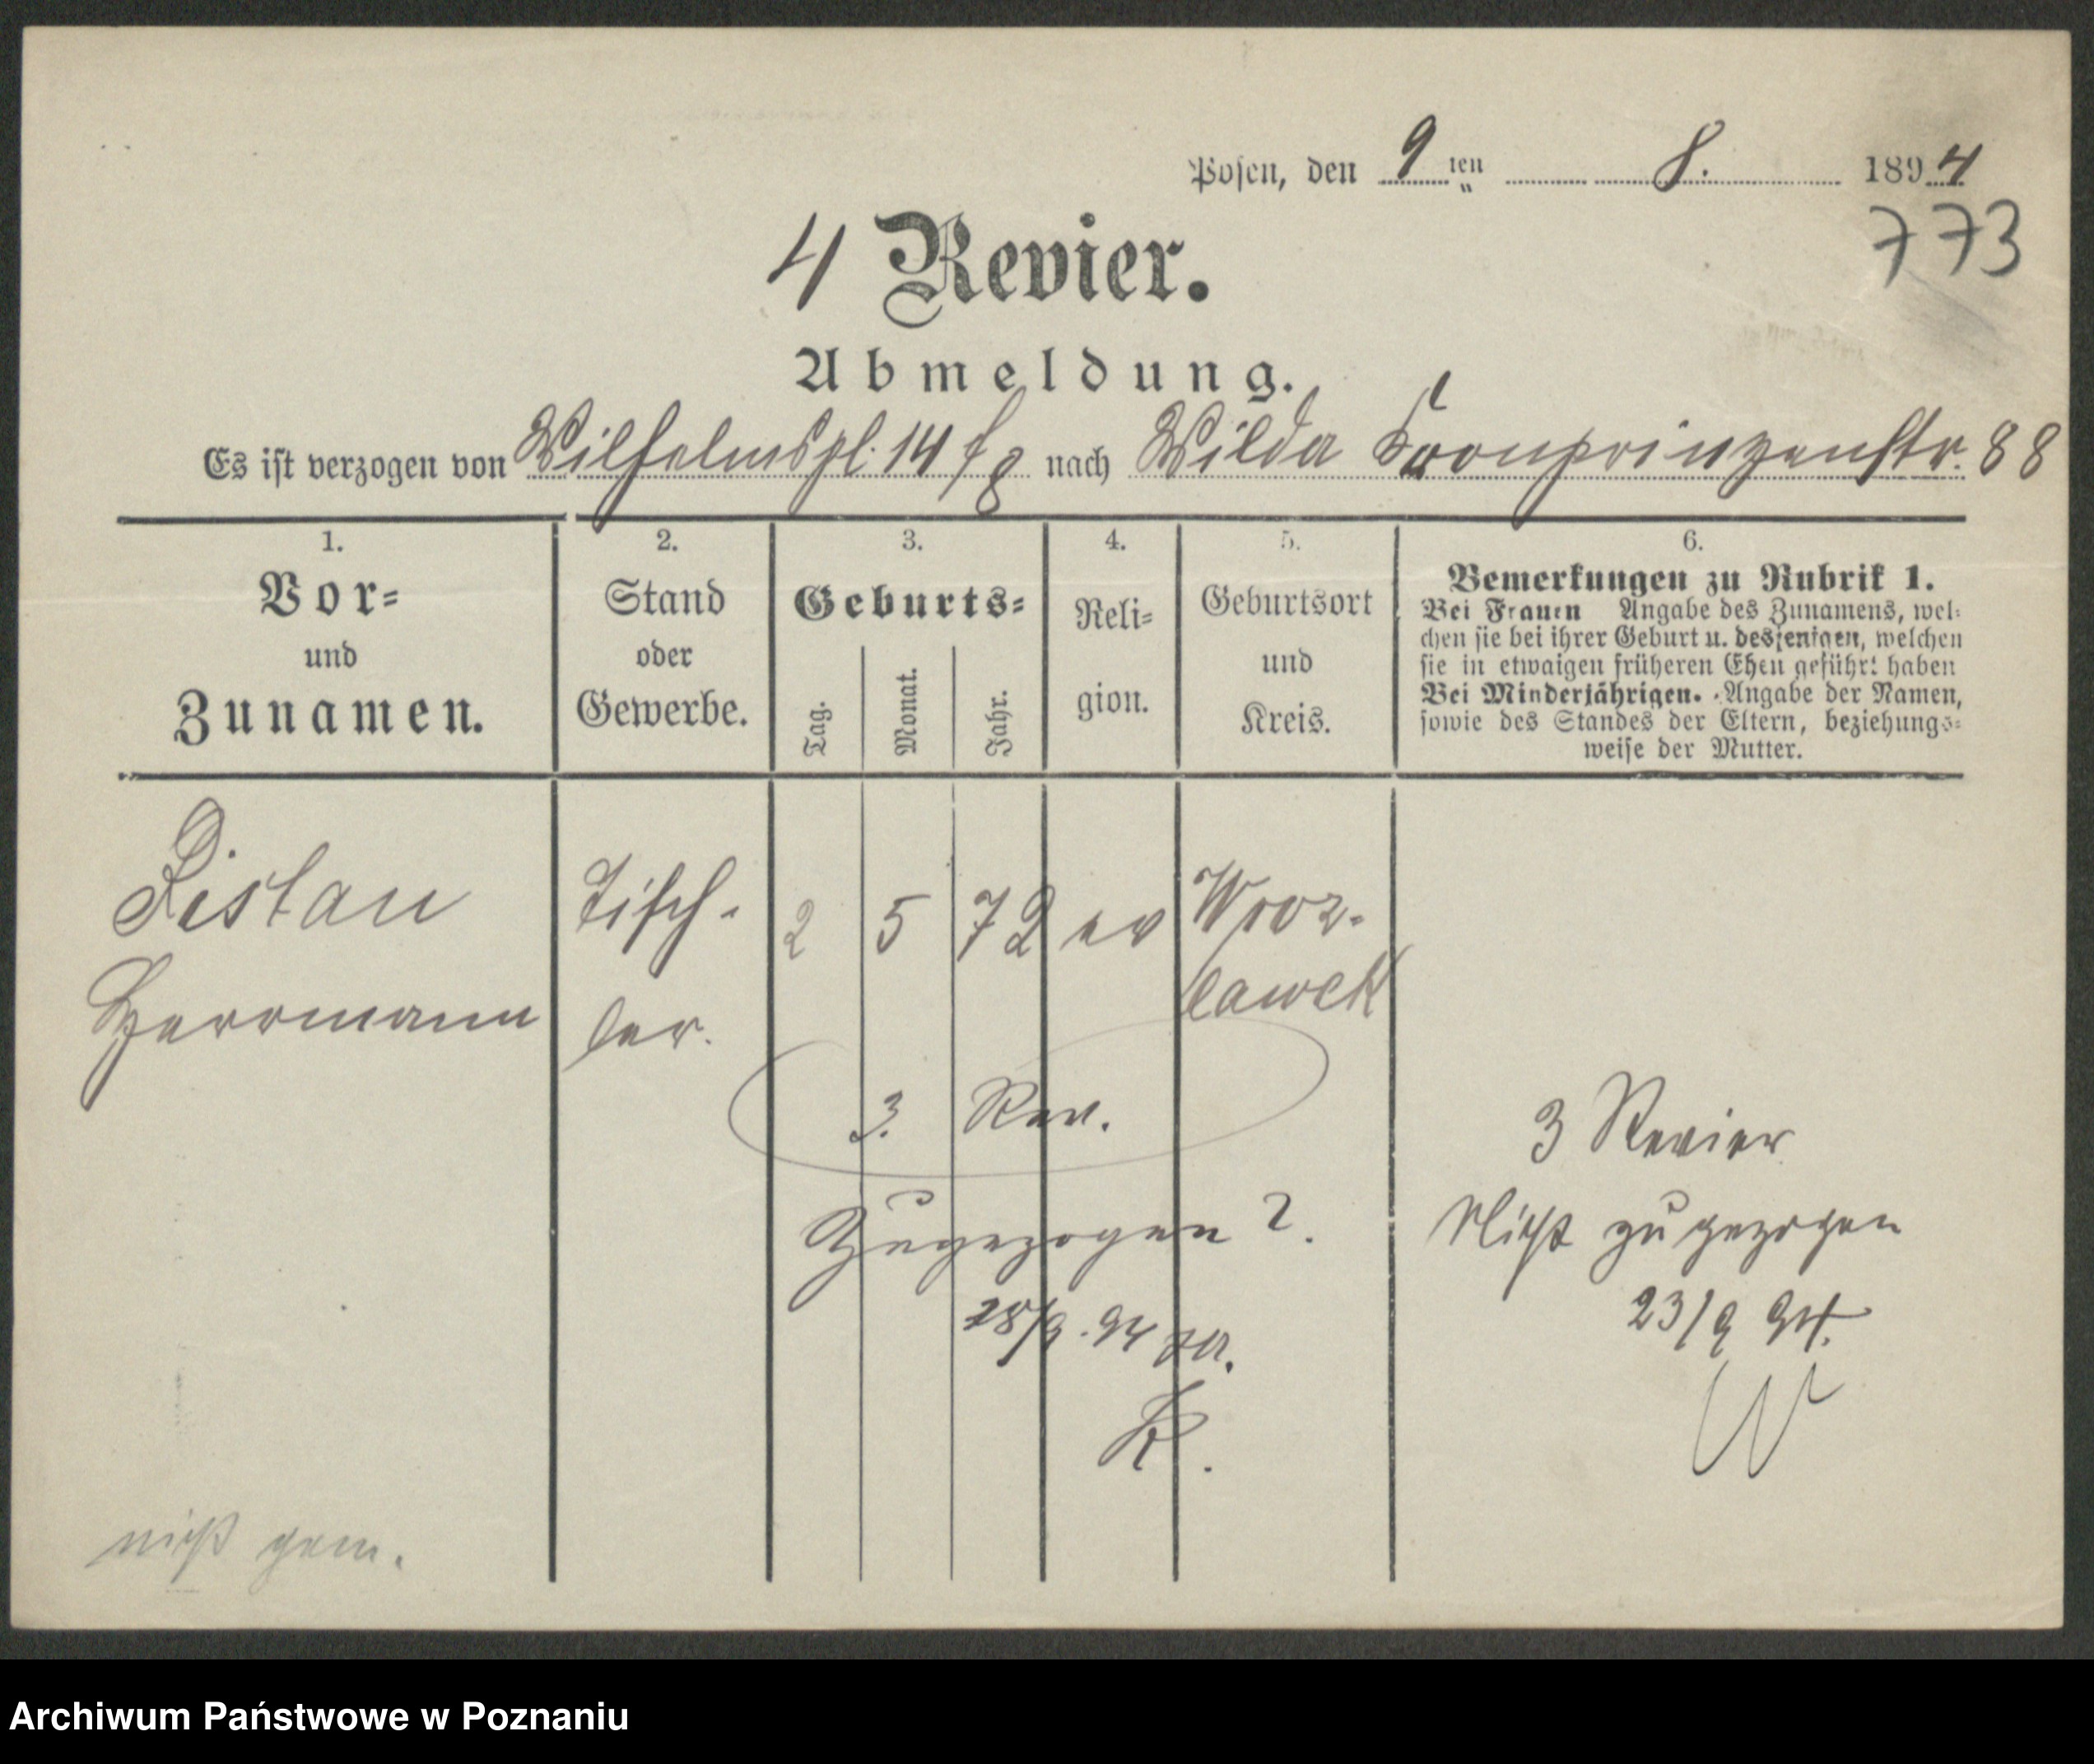 Posen, den 9ten 8. 1894
773
4 Revier.
Abmeldung.
Es ist verzogen von Wilhelmspl. 14 nach Wilda Kronprinzenstr. 88
1. 2. 3. 4. 5. 6.
Vor- und Zunamen.
Stand oder Gewerbe.
Geburts-
Tag. Monat. Jahr.
Reli-
gion.
Geburtsort und Kreis.
Bemerkungen zu Rubrik 1.
Bei Frauen Angabe des Zunamens, wel-
chen sie bei ihrer Geburt u. desjenigen, welchen
sie in etwaigen früheren Ehen geführt haben
Bei Minderjährigen. Angabe der Namen,
sowie des Standes der Eltern, beziehungs-
weise der Mutter.
Tisch- 2 5 72 ev Wroz-
Herrmann ler. lawek
3. Rev.
Zugezogen ?
3 Revier
Nicht zugezogen
23/9 94.
K.
W
nicht gem.
Archiwum Państwowe w Poznaniu